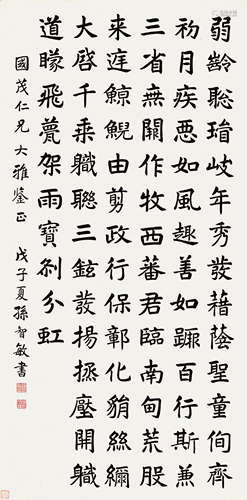 弱齡聡㻛岐年秀發藉蔭聖童佝齊
初月疾惡如風趣善如踬百行斯兼
三省無闕作牧西蕃君臨南甸荒服
来庭鯨鯢由剪政行保鄣化狷絲纚
大啓千乘職聮三鉉發揚拯壓開軄
道曚飛甍架雨寶刹分虹
國茂仁兄大雅鉴正 戊子夏孫智敏書